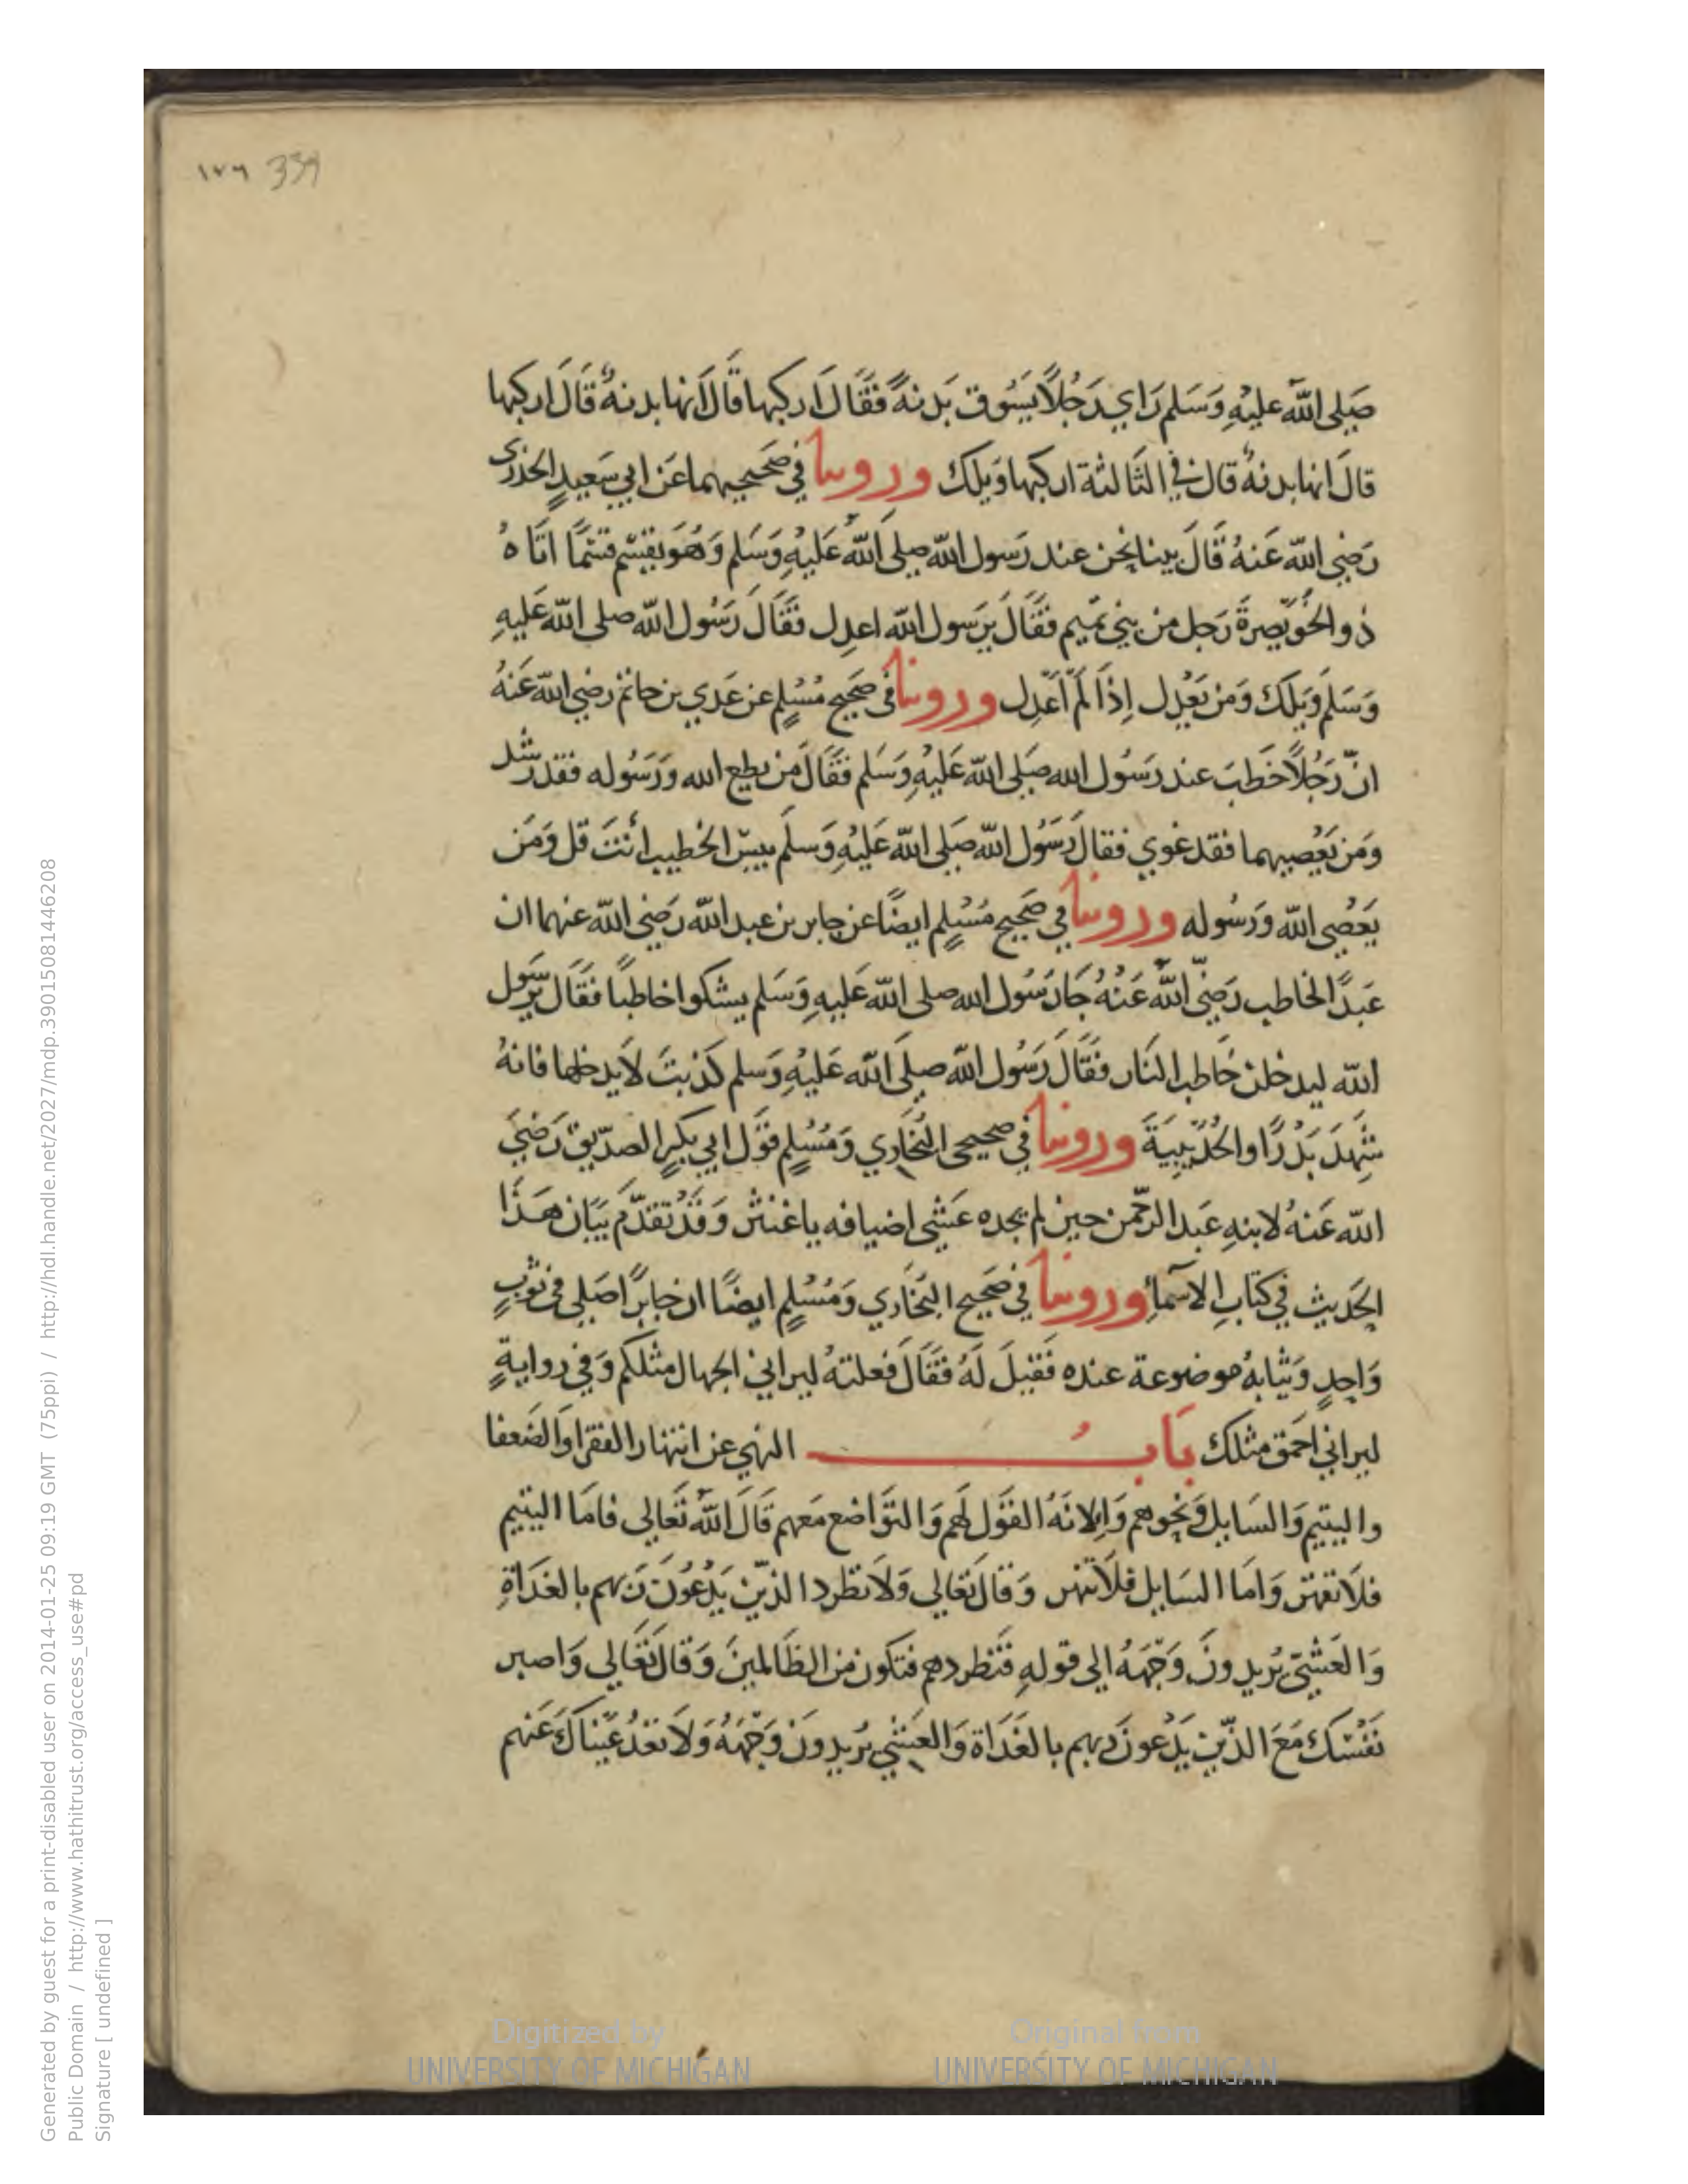 ١٧٦ 339
صَلى اللّه عليْهِ وَسَلم رَاي رَجُلاً يَسُوق بَدنةً فقَالَ اركبها قالَ انها بدنةٌ قَالَ اركبها
قالَ انها بدنةٌ قال في الثَالثة اركبها وَيلك وروينا في صَحيحيهما عَن ابي سَعيدٍ الخدري
رَضي اللّه عَنهُ قَالَ بينا نحن عند رَسول اللّه صلى اللّه عَليْهِ وَسَلم وَهُوَ يقسِم قسْمًا اتَاهُ
ذو الخُوَيْصِرةَ رَجل من بني تميم فقَالَ يرَسول اللّه اعدِل فقَالَ رَسُول اللّه صلى اللّه عَليهِ
وَسَلم وَيَلكَ وَمَن يَعْدِل إِذَا لَمْ أَعْدِل وروينا في صَحيح مُسْلِم عن عَدي بن حاتم رضي اللّه عَنهُ
انّ رَجُلاً خَطبَ عند رَسُول الله صَلى اللّه عَليْهِ وَسَلم فقَالَ مَن يطع الله وَرَسُوله فقد رَشد
وَمَن يَعْصِيهما فقد غوي فقالَ رَسُول اللّه صَلى اللّه عَليْهِ وَسلَم بيسَ الخطيب أنتَ قل وَمَن
يَعْصِى اللّه وَرَسُوله وروينا في صَحيح مُسْلِم ايضًا عن جابر بن عبد اللّه رَضي اللّه عنهما ان
عَبدًا لحاطب رَضيَ اللّه عَنْهُ جَا رَسُول الله صلى اللّه عَليهِ وَسَلم يشكوا حاطبًا فقَالَ يرَسول
اللّه ليدخلن حَاطب النَار فقَالَ رَسُول اللّه صلَى اللّه عَليْهِ وَسلم كَذبتَ لاَ يدخلها فانهُ
شَهِدَ بَدْرًا والحُدَيْبيَةَ وروينا في صحيحى البُخَاري وَمُسْلِم قوَل ابي بكرٍ الصدّيق رَضيَ
اللّه عَنهُ لابنهِ عَبد الرحّمن حين لم يجده عَشى اضيافه يا غنثر وَقدْ تقدّمَ بَيَان هَذَا
الحَديث في كتابِ الاسمآءِ وروينا في صَحيح البُخَاري وَمُسْلِمٍ ايضًا ان جابرًا صَلى في ثوْبٍ
وَاحِدٍ وَثيابهُ موضوعة عنده فقيلَ لَهُ فقَالَ فعلتهُ ليراني الجهال مثلكم وَفي روايةٍ
ليراني احمَق مثلك بَابُ النهي عن انتهار الفقرا وَالضَعفا
واليتيم وَالسَايل وَنحوهم وَالانَهُ القوَل لهم وَالتوَاضع مَعهم قَالَ اللّهُ تَعَالي فامَا اليتيم
فلاَ تقهر وَامَا السَايل فلاَ تنهر وَقالَ تعَالي وَلاَ تطرد الذّين يَدْعُونَ رَبهم بالغدَاةِ
وَالعَشيّ يُريدونَ وَجْهَهُ الى قولهِ فتَطردهم فتكون من الظَالمينَ وَقالَ تعَالي وَاصبر
نفسَكَ مَعَ الذّين يَدْعونَ رَبهم بالغَدَاة وَالعَشي يُريدونَ وَجْهَهُ وَلاَ تعْدُ عَيْناكَ عَنهم
Digitized by
UNIVERSITY OF MICHIGAN
Original from
UNIVERSITY OF MICHIGAN
Generated by guest for a print-disabled user on 2014-01-25 09:19 GMT (75ppi) / http://hdl.handle.net/2027/mdp.39015081446208
Public Domain / http://www.hathitrust.org/access_use#pd
Signature [ undefined ]